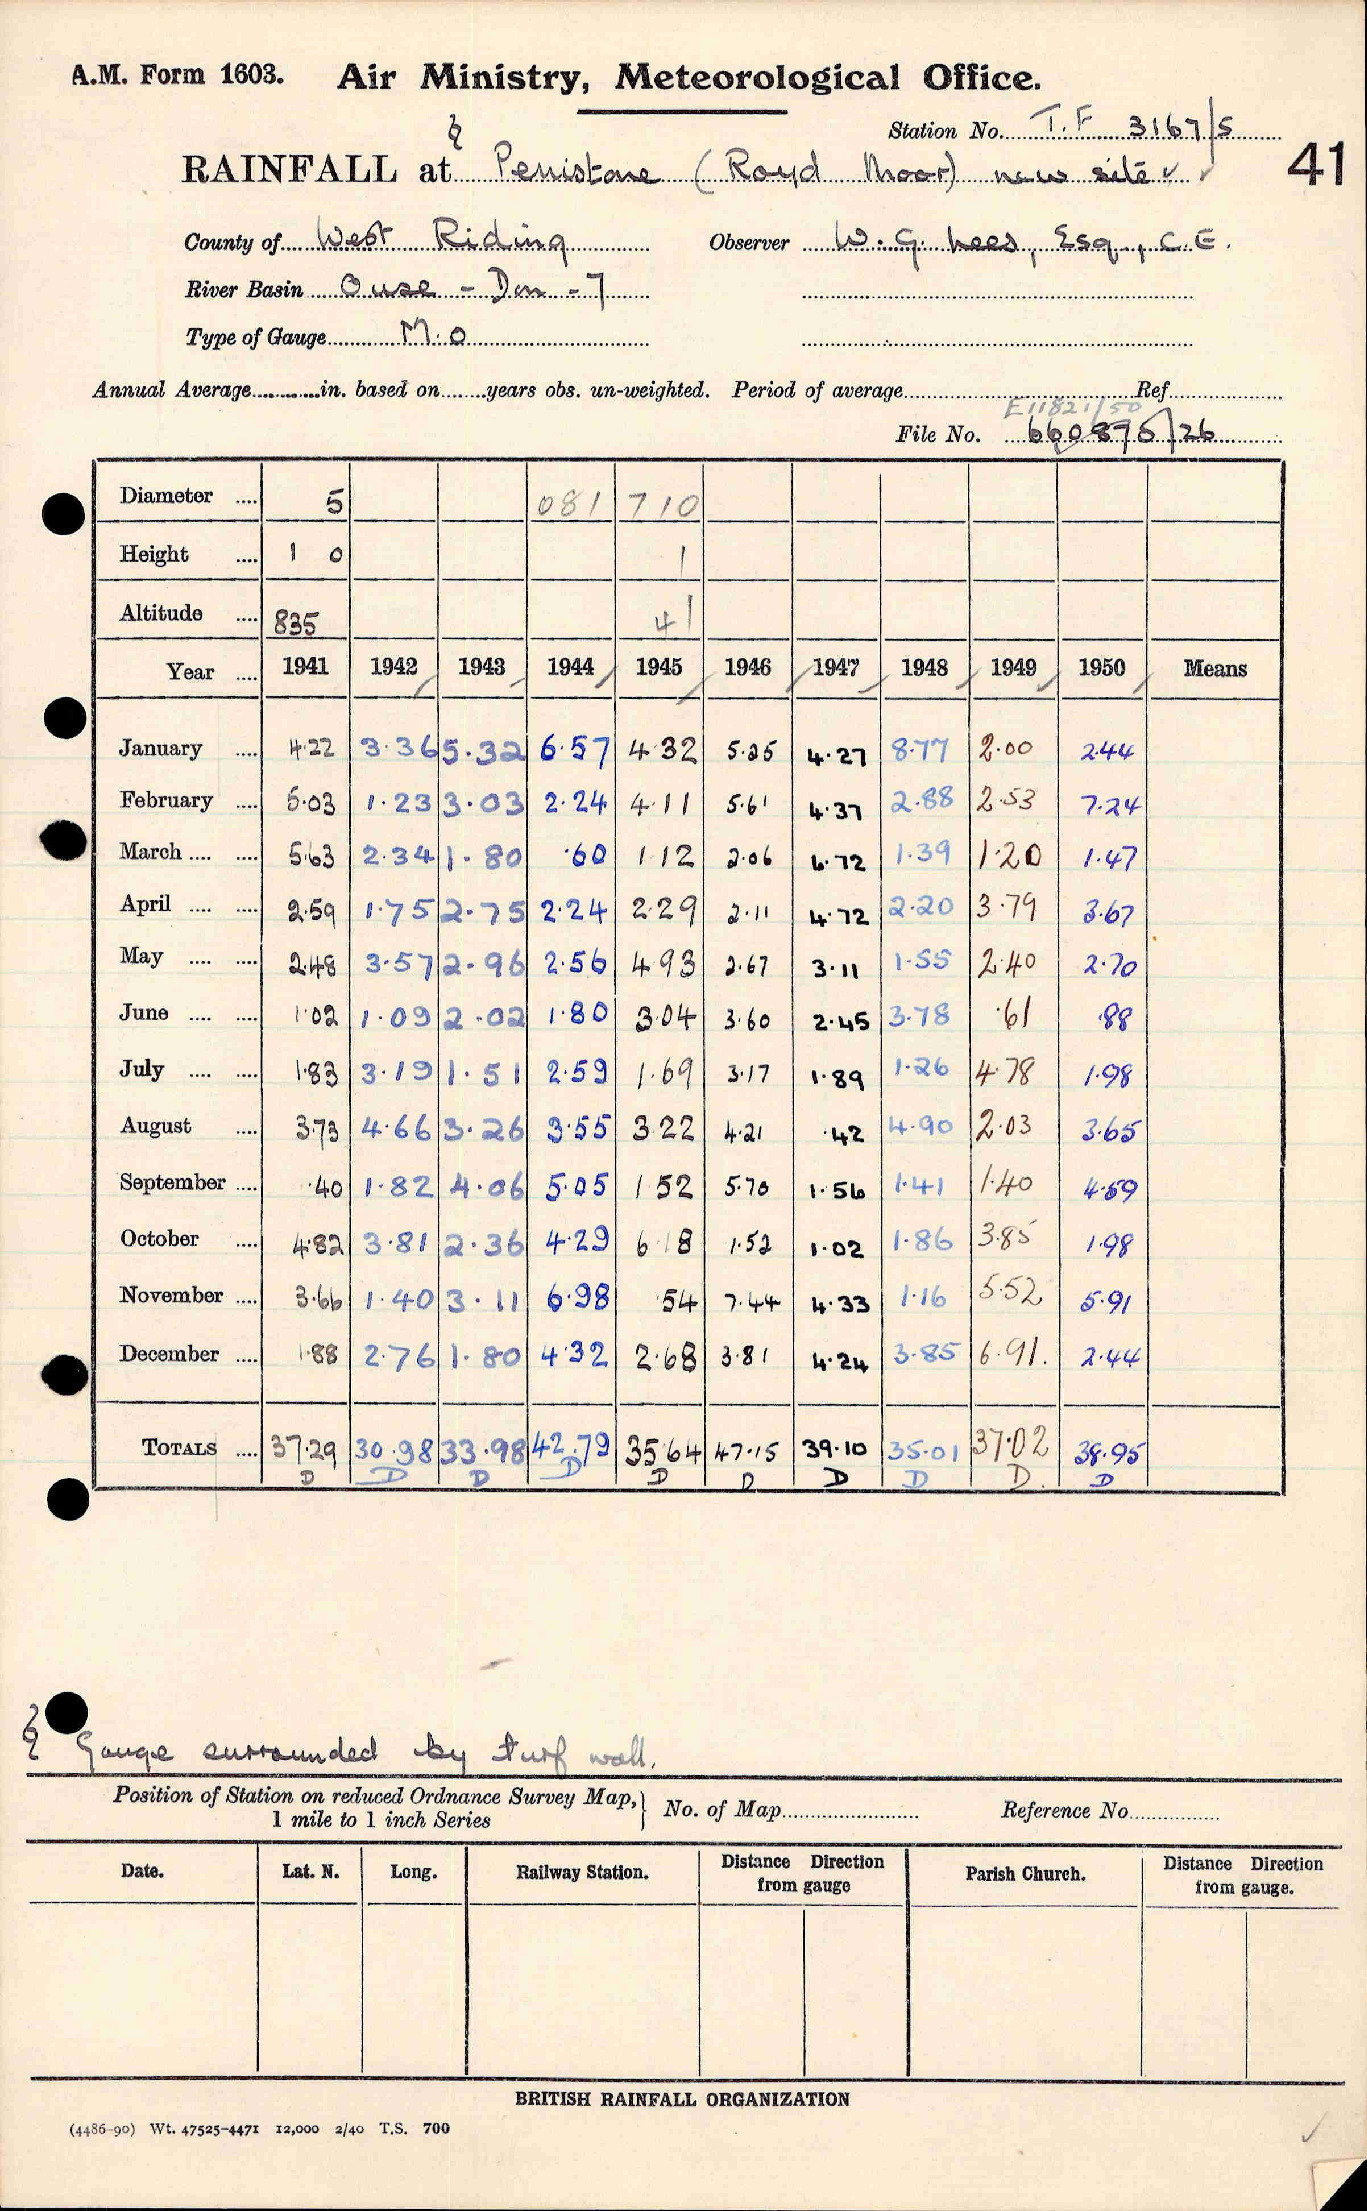 A.M. Form 1603. Air Ministry, Meteorological Office.
Station No. T.F 3167/5
41
RAINFALL at Penistone (Royd Moor) new site ✓ ✓
County of West Riding Observer W. G. Lees, Esq., C.E.
River Basin Ouse - Don - 7
Type of Gauge M.O
Annual Average............in. based on........years obs. un-weighted. Period of average........ Ref........
E11821/50
File No. 660875/26
Diameter .... 5 081 710
Height .... 1 0 1
Altitude .... 835 41
Year .... 1941 1942 1943 1944 1945 1946 1947 1948 1949 1950 Means
January .... 4.22 3.36 5.32 6.57 4.32 5.25 4.27 8.77 2.00 2.44
February .... 5.03 1.23 3.03 2.24 4.11 5.61 4.37 2.88 2.53 7.24
March .... .... 5.63 2.34 1.80 .60 1.12 2.06 6.72 1.39 1.20 1.47
April .... .... 2.59 1.75 2.75 2.24 2.29 2.11 4.72 2.20 3.79 3.67
May .... .... 2.48 3.57 2.96 2.56 4.93 2.67 3.11 1.55 2.40 2.70
June .... .... 1.02 1.09 2.02 1.80 3.04 3.60 2.45 3.78 .61 .88
July .... .... 1.83 3.19 1.51 2.59 1.69 3.17 1.89 1.26 4.78 1.98
August .... 3.73 4.66 3.26 3.55 3.22 4.21 .42 4.90 2.03 3.65
September .... .40 1.82 4.06 5.05 1 52 5.70 1.56 1.41 1.40 4.59
October .... 4.82 3.81 2.36 4.29 6 18 1.52 1.02 1.86 3.85 1.98
November .... 3.66 1.40 3.11 6.98 54 7.44 4.33 1.16 5.52 5.91
December .... 1.88 2.76 1.80 4.32 2.68 3.81 4.24 3.85 6.91. 2.44
TOTALS .... 37.29 30.98 33.98 42.79 35 64 47.15 39.10 35.01 37.02 38.95
D D D D D D D D D. D
Gauge surrounded by turf wall.
Position of Station on reduced Ordnance Survey Map, 1 mile to 1 inch Series } No. of Map........ Reference No........
Date. Lat. N. Long. Railway Station. Distance Direction from gauge Parish Church. Distance Direction from gauge.
BRITISH RAINFALL ORGANIZATION
(4486-90) Wt. 47525-4471 12,000 2/40 T.S. 700